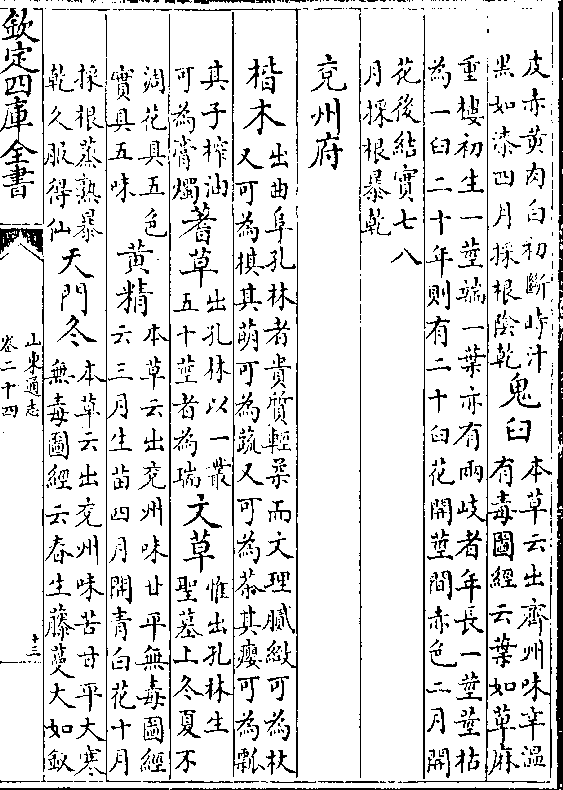 皮赤黃肉白初斷時汁
黑如漆四月採根陰乾
鬼臼
本草云出齊州味辛溫
有毒圖經云葉如草麻
重樓初生一莖端一葉亦有兩岐者年長一莖莖枯
為一臼二十年則有二十臼花開莖間赤色二月開
花後結實七八
月採根暴乾
兗州府
楷木
出曲阜孔林者貴質輕柔而文理膩緻可為杖
又可為棋其萌可為蔬又可為茶其癭可為瓢
其子榨油
可為膏燭
蓍草
出孔林以一叢
五十莖者為瑞
文草
惟出孔林生
聖墓上冬夏不
凋花具五色
實具五味
黃精
本草云出兗州味甘平無毒圖經
云三月生苗四月開青白花十月
採根蒸熟暴
乾久服得仙
天門冬
本草云出兗州味苦甘平大寒
無毒圖經云春生藤蔓大如釵
欽定四庫全書
山東通志
卷二十四
十三